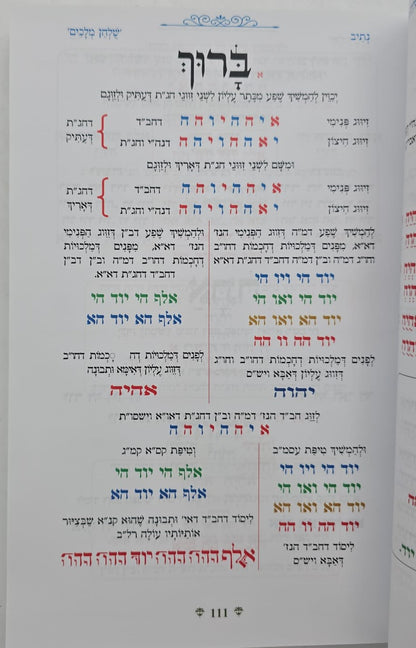 נְתִיב
שֻׁלְחַן מְלָכִים'
בָּרוּךְ
א
יכוין להמשיך שפע מכתר עליון לשני זווגי חג"ת דעתיק ולזווגם
זיווג פנימי א י ה ה י ו ה ה דחב"ד
זיווג חיצון י א ה ה ו י ה ה דנה"י וחג"ת
דחג"ת דעתיק
ומשם לשני זווגי חג"ת דאריך ולזווגם
זיווג פנימי א י ה ה י ו ה ה דחב"ד
זיווג חיצון י א ה ה ו י ה ה דנה"י וחג"ת
דחג"ת דאריך
להמשיך שפע דמ"ה דזווג הפנימי הנז'
דא"א, מפנים דמלכויות דחכמות דחו"ב
וחו"ג דמ"ה ומ"ה דחב"ד דחג"ת דא"א
יוד הי ויו הי
יוד הי ואו הי
יוד הא ואו הא
יוד הה וו הה
לפנים דמלכויות דחכמות דחו"ב וחו"ג
דזווג עליון דאבא ויש"ס
יהוה
ולהמשיך שפע דב"ן דזווג הפנימי
הנז' דא"א, מפנים דמלכויות
דחכמות דחו"ב וחו"ג דב"ן ודב"ן
דחב"ד דחג"ת דא"א.
אלף הי יוד הי
אלף הא יוד הא
דזווג עליון דאימא ותבונה
אהיה
לזווג חב"ד הנז' דמ"ה וב"ן דחג"ת דאו"א וישסו"ת
א י ה ה י ו ה ה
ולהמשיך טיפת עסמ"ב
יוד הי ויו הי
יוד הי ואו הי
יוד הא ואו הא
יוד הה וו הה
ליסוד דחב"ד הנז'
דאבא ויש"ס
וטיפת קס"א קמ"ג
אלף הי יוד הי
אלף הא יוד הא
ליסוד דחב"ד דאו"י ותבונה שהוא קנ"א שבציור
אותיותיו עולה רל"ב
111